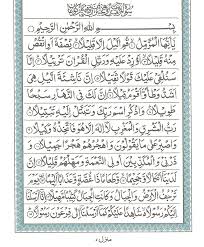 بِسْمِ اللهِ الرَّحْمٰنِ الرَّحِيْمِ
يٰۤاَيُّهَا الْمُزَّمِّلُ ۝ قُمِ الَّيْلَ اِلَّا قَلِيْلًا ۝ نِّصْفَهٗۤ اَوِ انْقُصْ
مِنْهُ قَلِيْلًا ۝ اَوْ زِدْ عَلَيْهِ وَرَتِّلِ الْقُرْاٰنَ تَرْتِيْلًا ۝ اِنَّا
سَنُلْقِيْ عَلَيْكَ قَوْلًا ثَقِيْلًا ۝ اِنَّ نَاشِئَةَ الَّيْلِ هِيَ
اَشَدُّ وَطْاً وَّاَقْوَمُ قِيْلًا ۝ اِنَّ لَكَ فِي النَّهَارِ سَبْحًا
طَوِيْلًا ۝ وَاذْكُرِ اسْمَ رَبِّكَ وَتَبَتَّلْ اِلَيْهِ تَبْتِيْلًا ۝
رَبُّ الْمَشْرِقِ وَالْمَغْرِبِ لَاۤ اِلٰهَ اِلَّا هُوَ فَاتَّخِذْهُ وَكِيْلًا ۝
وَاصْبِرْ عَلٰى مَا يَقُوْلُوْنَ وَاهْجُرْهُمْ هَجْرًا جَمِيْلًا ۝ وَ
ذَرْنِيْ وَالْمُكَذِّبِيْنَ اُولِي النَّعْمَةِ وَمَهِّلْهُمْ قَلِيْلًا ۝ اِنَّ
لَدَيْنَاۤ اَنْكَالًا وَّجَحِيْمًا ۝ وَّطَعَامًا ذَا غُصَّةٍ وَّعَذَابًا اَلِيْمًا ۝ يَوْمَ
تَرْجُفُ الْاَرْضُ وَالْجِبَالُ وَكَانَتِ الْجِبَالُ كَثِيْبًا مَّهِيْلًا ۝ اِنَّاۤ
اَرْسَلْنَاۤ اِلَيْكُمْ رَسُوْلًا شَاهِدًا عَلَيْكُمْ كَمَاۤ اَرْسَلْنَاۤ اِلٰى فِرْعَوْنَ رَسُوْلًا ۝
منزل ٧